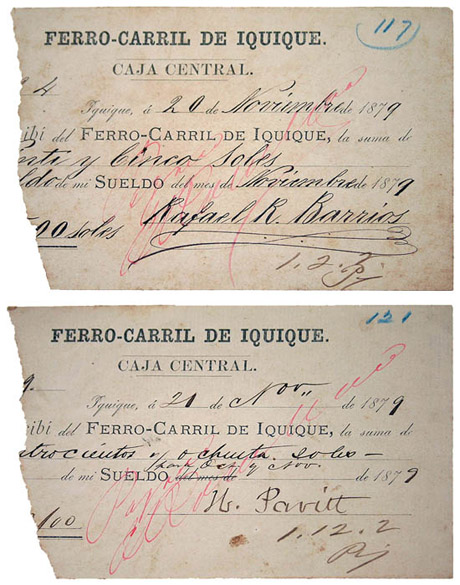 FERRO-CARRIL DE IQUIQUE.
117
CAJA CENTRAL.
4
Iquique, á 20 de Noviembre de 1879
cibí del FERRO-CARRIL DE IQUIQUE, la suma de
nte y Cinco Soles
aldo de mi SUELDO del mes de Noviembre de 1879
00 soles Rafael R. Barrios
1.2.2
FERRO-CARRIL DE IQUIQUE.
121
CAJA CENTRAL.
9.
Iquique, á 21 de Nov. de 1879
cibí del FERRO-CARRIL DE IQUIQUE, la suma de
trocientos y ochenta soles
para Oct y Nov.
de mi SUELDO del mes de de 1879
/100 H. Pavitt
1.12.2